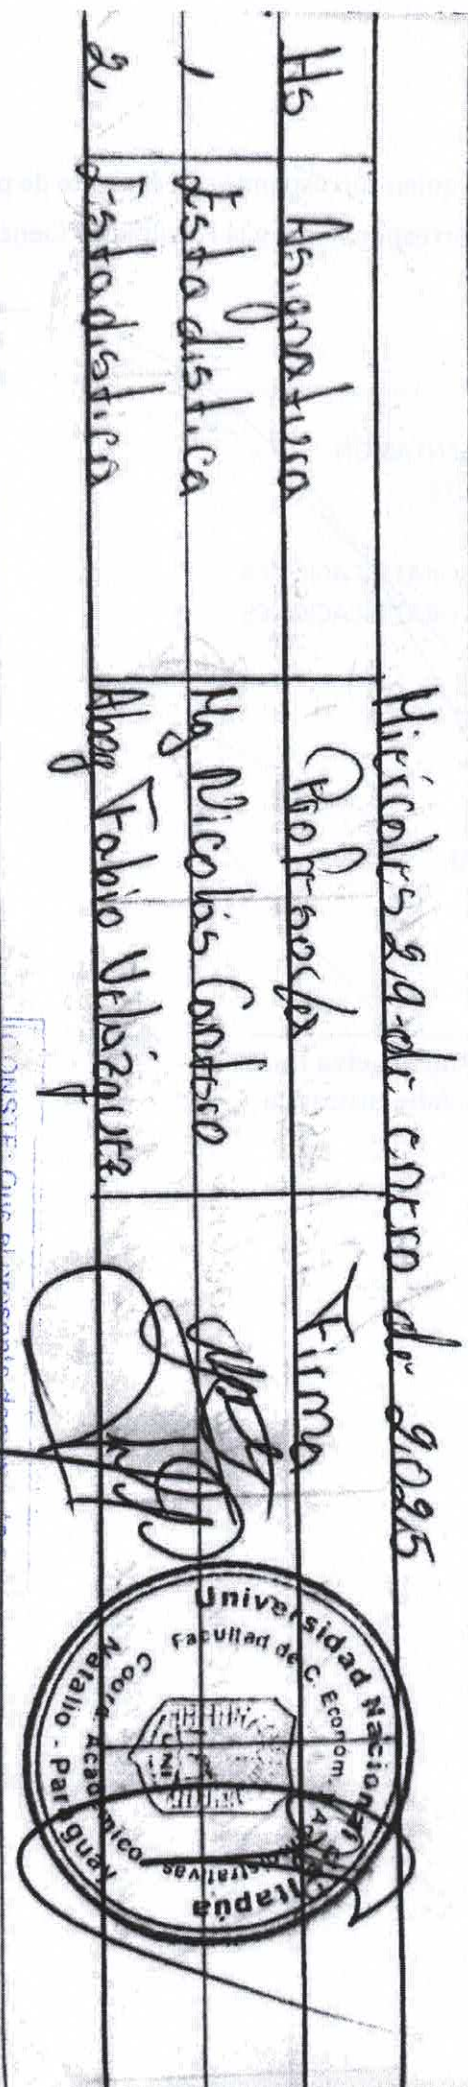 Miércoles 29 de enero de 2.025
Hs Asignatura Profesor/a Firma
1 Estadistica Mg Nicolás Cantero
2 Estadistica Abog Fabio Velázquez
Universidad Nacional de Itapúa
Facultad de C. Econom. y Administrativas
Coord. Académico
Natalio - Paraguay
UNI
CONSTE: Que el presente